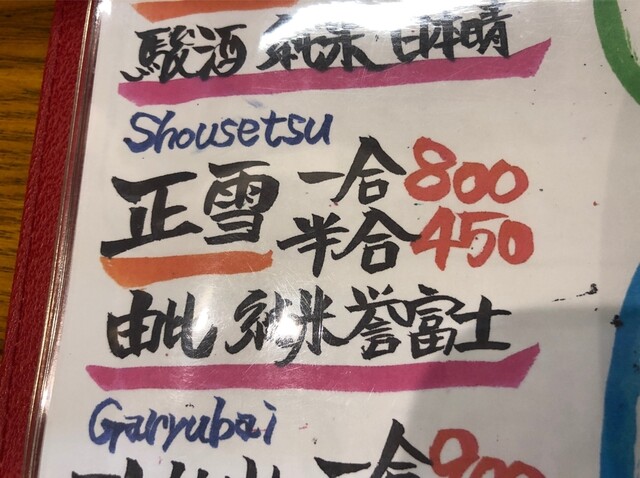 駿酒 純米 日本晴
Shousetsu
正雪 一合 800
半合 450
由比 純米 誉富士
Garyubai
一合 900